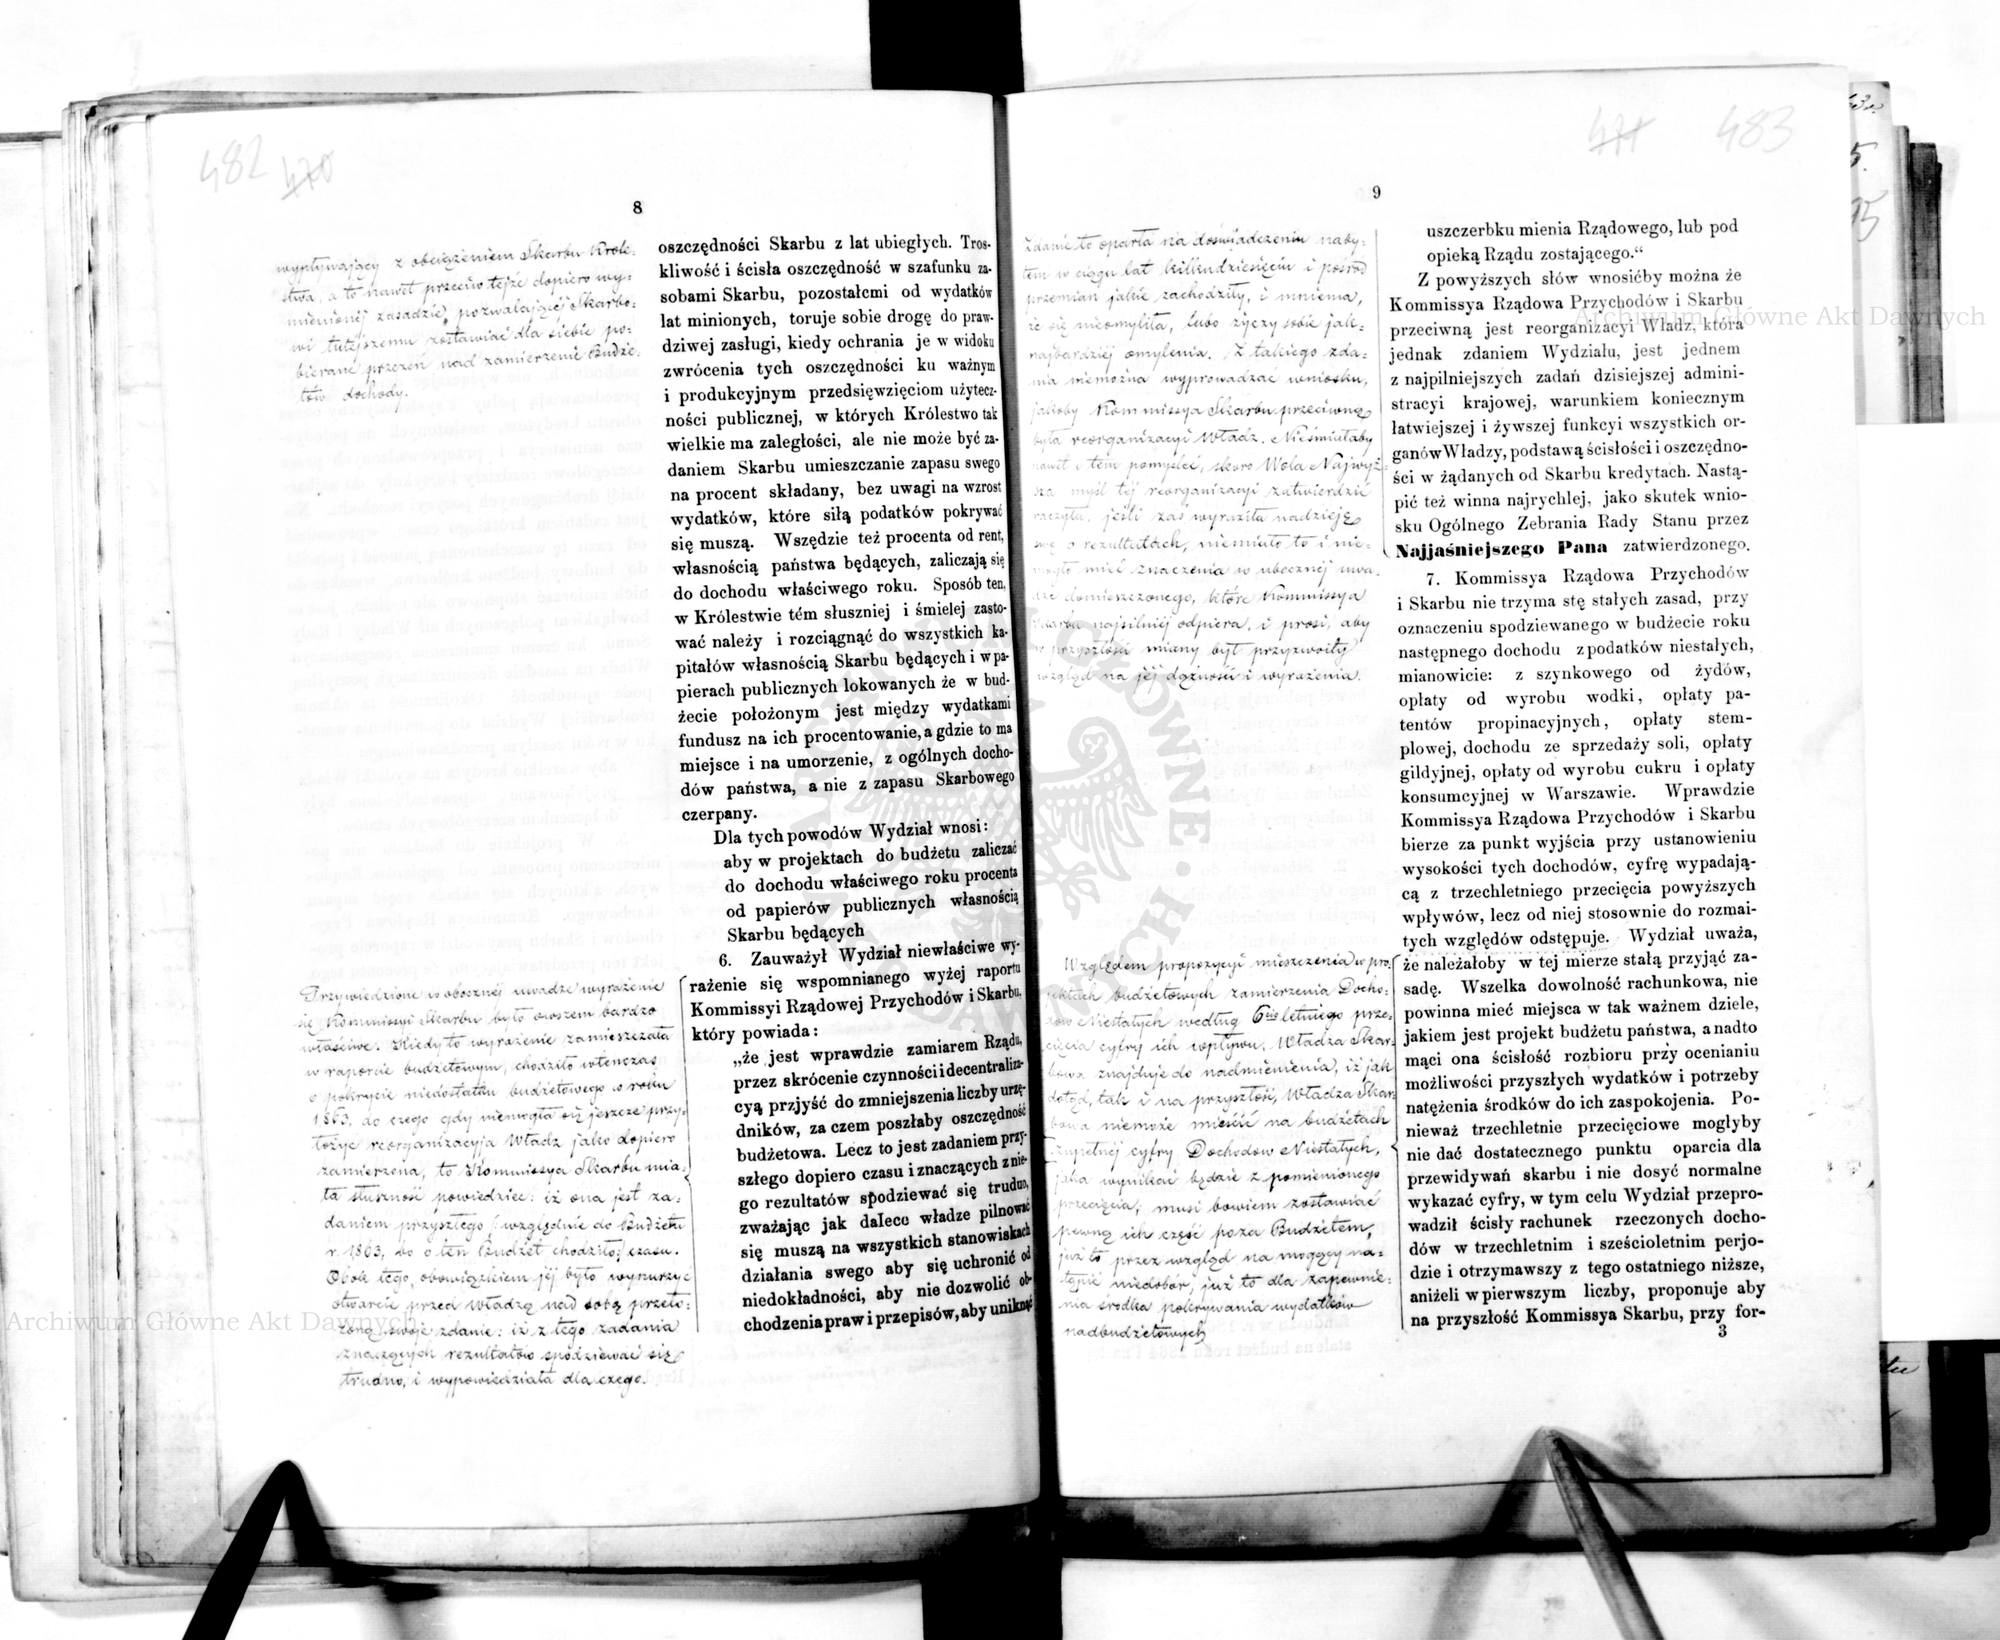 482 470
8
wypływający z obciążeniem Skarbu Króle-
stwa, a to nawet przeciw tejże dopiero wy-
mienionej zasadzie, pozwalającej Skarbo-
wi tutejszemu zostawiać dla siebie po-
bierane przezeń nad zamierzenie Budże-
tów dochody.
Przywiedzione w obocznej uwadze wyrażenie
się Kommissyi Skarbu było owszem bardzo
właściwe. Kiedy to wyrażenie zamieszczała
w raporcie budżetowym, chodziło wtenczas
o pokrycie niedostatku budżetowego w roku
1863, do czego gdy niemogła się jeszcze przy-
łożyć reorganizacyja Władz jako dopiero
zamierzona, to Kommissya Skarbu mia-
ła słuszność powiedzieć: iż ona jest za-
daniem przyszłego (względnie do Budżetu
r. 1863, bo o ten Budżet chodziło) czasu.
Obok tego, obowiązkiem jej było wynurzyć
otwarcie przed Władzą nad sobą przeło-
żoną swoje zdanie: iż z tego zadania
znaczących rezultatów spodziewać się
trudno, i wypowiedziała dla czego.
oszczędności Skarbu z lat ubiegłych. Tros-
kliwość i ścisła oszczędność w szafunku za-
sobami Skarbu, pozostałcmi od wydatków
lat minionych, toruje sobie drogę do praw-
dziwej zasługi, kiedy ochrania je w widoku
zwrócenia tych oszczędności ku ważnym
i produkcyjnym przedsięwzięciom użytecz-
ności publicznej, w których Królestwo tak
wielkie ma zaległości, ale nie może być za-
daniem Skarbu umieszczanie zapasu swego
na procent składany, bez uwagi na wzrost
wydatków, które siłą podatków pokrywać
się muszą. Wszędzie też procenta od rent,
własnością państwa będących, zaliczają się
do dochodu właściwego roku. Sposób ten,
w Królestwie tém słuszniej i śmielej zasto-
wać należy i rozciągnąć do wszystkich ka-
pitałów własnością Skarbu będących i w pa-
pierach publicznych lokowanych że w bud-
żecie położonym jest między wydatkami
fundusz na ich procentowanie, a gdzie to ma
miejsce i na umorzenie, z ogólnych docho-
dów państwa, a nie z zapasu Skarbowego
czerpany.
Dla tych powodów Wydział wnosi:
aby w projektach do budżetu zaliczać
do dochodu właściwego roku procenta
od papierów publicznych własnością
Skarbu będących
6. Zauważył Wydział niewłaściwe wy-
rażenie się wspomnianego wyżej raportu
Kommissyi Rządowej Przychodów i Skarbu,
który powiada:
„że jest wprawdzie zamiarem Rządu,
przez skrócenie czynności i decentraliza-
cyą przjyść do zmniejszenia liczby urzę-
dników, za czem poszłaby oszczędność
budżetowa. Lecz to jest zadaniem przy-
szłego dopiero czasu i znaczących z nie-
go rezultatów spodziewać się trudno,
zważając jak dalece władze pilnować
się muszą na wszystkich stanowiskach
działania swego aby się uchronić od
niedokładności, aby nie dozwolić ob-
chodzenia praw i przepisów, aby uniknąć
471 483
9
Zdanie to oparła na doświadczeniu naby-
tem w ciągu lat kilkudziesięciu i pośród
przemian jakie zachodziły, i mniema,
że się nieomyliła, lubo życzy sobie jak-
najbardziej omylenia. Z takiego zda-
nia niemożna wyprowadzać wniosku,
jakoby Kommissya Skarbu przeciwną
była reorganizacyi Władz. Nieśmiałaby
nawet o tem pomyśleć, skoro Wola Najwyż-
sza myśl tej reorganizacyi zatwierdzić
raczyła, jeśli zaś wyraziła nadzieję
swą o rezultatach, niemiało to i nie-
mogło mieć znaczenia w ubocznej uwa-
dze domieszczonego, które Kommissya
Skarbu najsilniej odpiera, i prosi, aby
w przyszłości miany był przyzwoity
wzgląd na jej dążności i wyrażenia.
Względem propozycyi mieszczenia w pro-
jektach budżetowych zamierzenia Docho-
dów Niestałych według 6cio letniego prze-
cięcia cyfry ich wpływu, Władza Skar-
bowa znajduje do nadmienienia, iż jak
dotąd, tak i na przyszłość, Władza Skar-
bowa niemoże mieścić na budżetach
zupełnej cyfry Dochodów Niestałych,
jaka wynikać będzie z pomienionego
przecięcia, musi bowiem zostawiać
pewną ich część poza Budżetem,
już to przez wzgląd na mogący na-
stąpić niedobór, już to dla zapewnie-
nia środka pokrywania wydatków
nadbudżetowych
uszczerbku mienia Rządowego, lub pod
opieką Rządu zostającego.“
Z powyższych słów wnosićby można że
Kommissya Rządowa Przychodów i Skarbu
przeciwną jest reorganizacyi Władz, która
jednak zdaniem Wydziału, jest jednem
z najpilniejszych zadań dzisiejszej admini-
stracyi krajowej, warunkiem koniecznym
łatwiejszej i żywszej funkcyi wszystkich or-
ganów Władzy, podstawą ścisłości i oszczędno-
ści w żądanych od Skarbu kredytach. Nastą-
pić też winna najrychlej, jako skutek wnio-
sku Ogólnego Zebrania Rady Stanu przez
Najjaśniejszego Pana zatwierdzonego.
7. Kommissya Rządowa Przychodów
i Skarbu nie trzyma stę stałych zasad, przy
oznaczeniu spodziewanego w budżecie roku
następnego dochodu z podatków niestałych,
mianowicie: z szynkowego od żydów,
opłaty od wyrobu wodki, opłaty pa-
tentów propinacyjnych, opłaty stem-
plowej, dochodu ze sprzedaży soli, opłaty
gildyjnej, opłaty od wyrobu cukru i opłaty
konsumcyjnej w Warszawie. Wprawdzie
Kommissya Rządowa Przychodów i Skarbu
bierze za punkt wyjścia przy ustanowieniu
wysokości tych dochodów, cyfrę wypadają-
cą z trzechletniego przecięcia powyższych
wpływów, lecz od niej stosownie do rozmai-
tych względów odstępuje. Wydział uważa,
że należałoby w tej mierze stałą przyjąć za-
sadę. Wszelka dowolność rachunkowa, nie
powinna mieć miejsca w tak ważnem dziele,
jakiem jest projekt budżetu państwa, a nadto
mąci ona ścisłość rozbioru przy ocenianiu
możliwości przyszłych wydatków i potrzeby
natężenia środków do ich zaspokojenia. Po-
nieważ trzechletnie przecięciowe mogłyby
nie dać dostatecznego punktu oparcia dla
przewidywań skarbu i nie dosyć normalne
wykazać cyfry, w tym celu Wydział przepro-
wadził ścisły rachunek rzeczonych docho-
dów w trzechletnim i sześcioletnim perjo-
dzie i otrzymawszy z tego ostatniego niższe,
aniżeli w pierwszym liczby, proponuje aby
na przyszłość Kommissya Skarbu, przy for-
3
Archiwum Główne Akt Dawnych
Archiwum Główne Akt Dawnych
ARCHIWUM GŁÓWNE AKT DAWNYCH